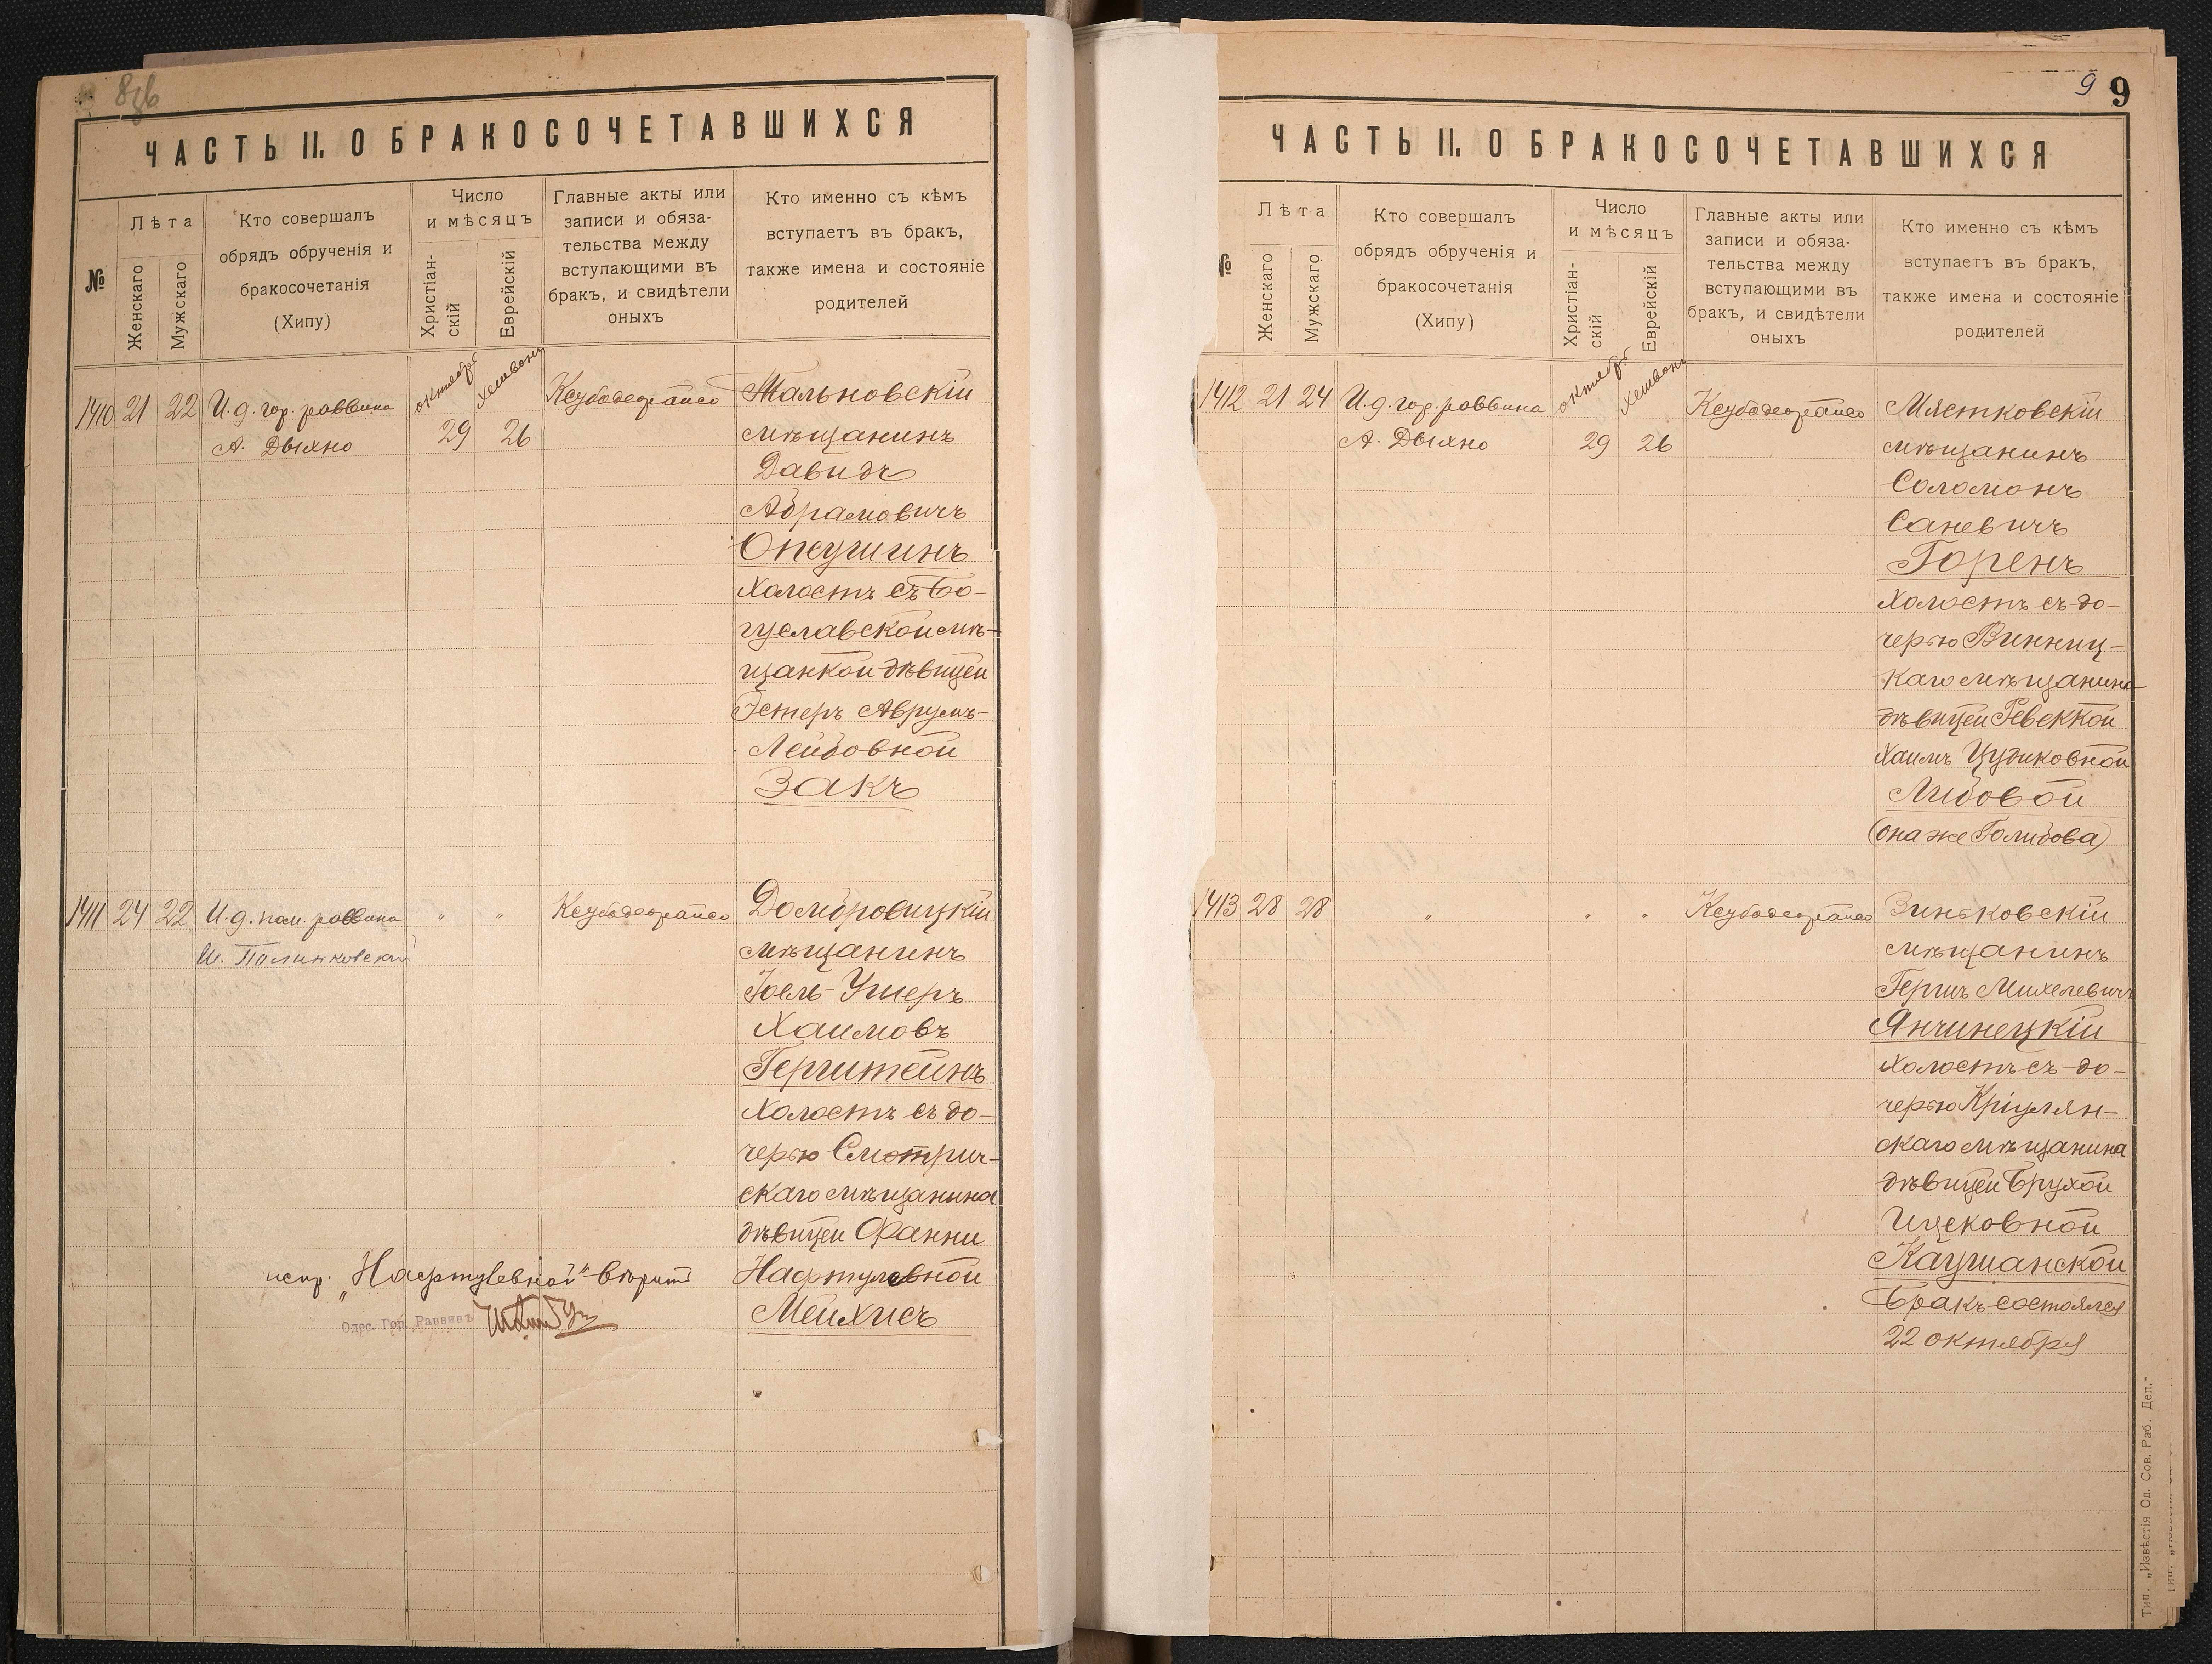 ЧАСТЬ II. О БРАКОСОЧЕТАВШИХСЯ
№
Лѣта
Женскаго
Мужскаго
Кто совершалъ
обрядъ обрученія и
бракосочетанія
(Хипу)
Число
и мѣсяцъ
Христіан-
скій
Еврейскій
Главные акты или
записи и обяза-
тельства между
вступающими въ
бракъ, и свидѣтели
оныхъ
Кто именно съ кѣмъ
вступаетъ въ бракъ,
также имена и состояніе
родителей
1410 21 22 И.д. гор. раввина
А. Дыхно
октября 29
Хешвонъ 26
Тальновскій
мѣщанинъ
Давидъ
Абрамовичъ
Опсушинъ
Холостъ съ Бо-
гуславской мѣ-
щанкой дѣвицей
Эстеръ Аврумъ-
Лейбовной
Закъ
1411 24 22 И.д. пом. раввина
И. Полинковскій
" "
Домбровицкій
мѣщанинъ
Іоель-Ушеръ
Хаимовъ
Герштейнъ
Холостъ съ до-
черью Смотрич-
скаго мѣщанина
дѣвицей Фанни
Нафтулевной
Мейхисъ
испр. „Нафтулевной" вѣрить
Одес. Гор. Раввинъ
9 9
ЧАСТЬ II. О БРАКОСОЧЕТАВШИХСЯ
№
Лѣта
Женскаго
Мужскаго
Кто совершалъ
обрядъ обрученія и
бракосочетанія
(Хипу)
Число
и мѣсяцъ
Христіан-
скій
Еврейскій
Главные акты или
записи и обяза-
тельства между
вступающими въ
бракъ, и свидѣтели
оныхъ
Кто именно съ кѣмъ
вступаетъ въ бракъ,
также имена и состояніе
родителей
1412 21 24 И.д. гор. раввина
А. Дыхно
октября 29
Хешвонъ 26
Мястковскій
мѣщанинъ
Соломонъ
Саневичъ
Горенъ
Холостъ съ до-
черью Винниц-
каго мѣщанина
дѣвицей Ревеккой
Хаимъ Цудиковной
Либовой
(она же Голибова)
1413 28 28 " " "
Зиньковскій
мѣщанинъ
Гершъ Михелевичъ
Янчинецкій
Холостъ съ до-
черью Кріулян-
скаго мѣщанина
дѣвицей Брухой
Ицековной
Каушанской
Бракъ состоялся
22 октября
Тип. „Извѣстія Од. Сов. Раб. Деп."